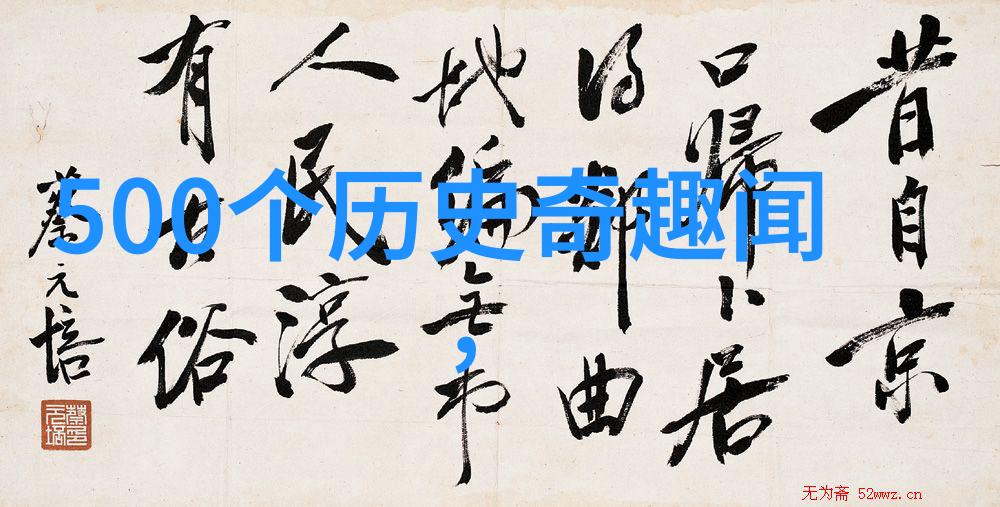 500个历史奇趣闻
，
昔自京
口歸卜居
得曲
地偏無市
人民淳
有古俗
蔡元培
无为斋 52wwz.cn